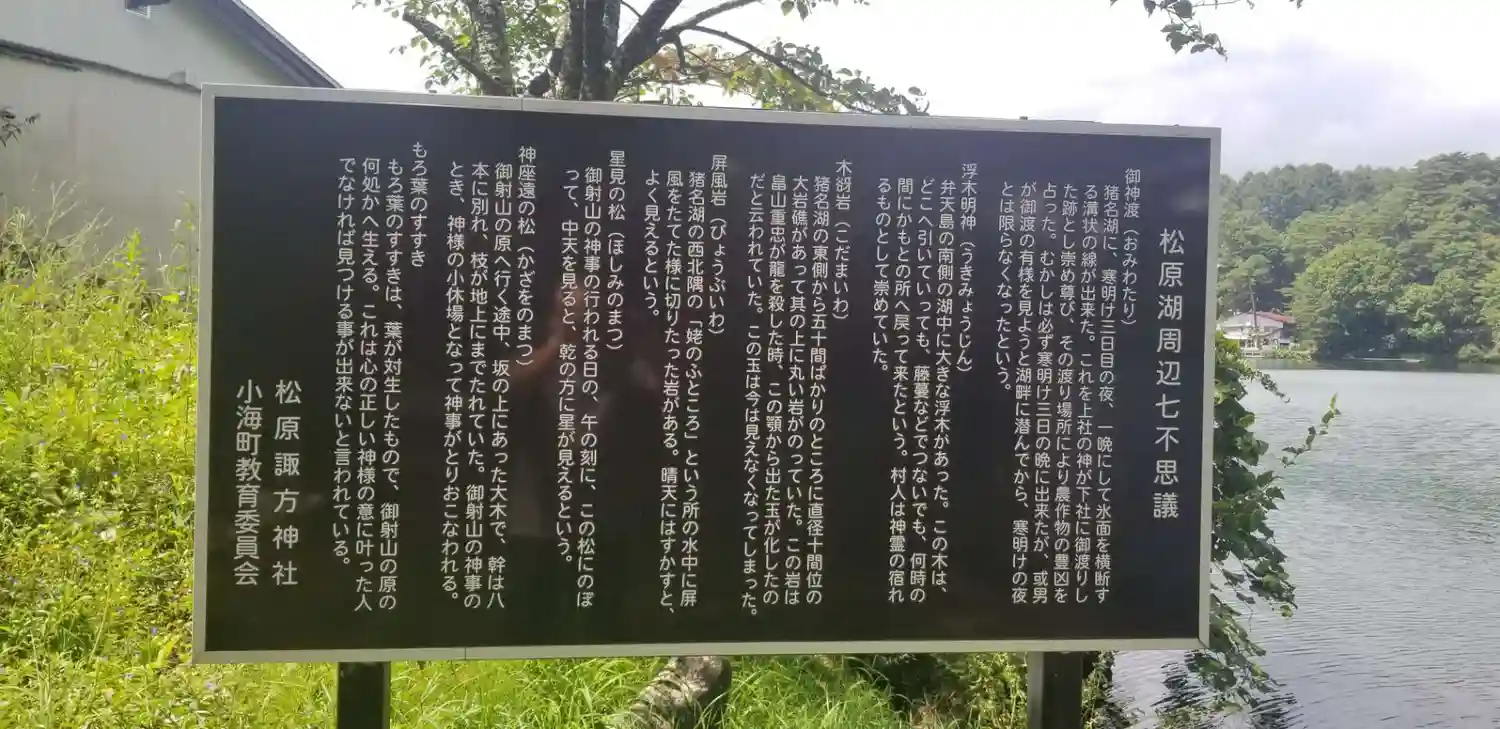 松原湖周辺七不思議
御神渡（おみわたり）
猪名湖に、寒明け三日目の夜、一晩にして氷面を横断す
る溝状の線が出来た。これを上社の神が下社に御渡りし
た跡とし崇め尊び、その渡り場所により農作物の豊凶を
占った。むかしは必ず寒明け三日の晩に出来たが、或男
が御渡の有様を見ようと湖畔に潜んでから、寒明けの夜
とは限らなくなったという。
浮木明神（うきみょうじん）
弁天島の南側の湖中に大きな浮木があった。この木は、
どこへ引いていっても、藤蔓などでつないでも、何時の
間にかもとの所へ戻って来たという。村人は神霊の宿れ
るものとして崇めていた。
木谺岩（こだまいわ）
猪名湖の東側から五十間ばかりのところに直径十間位の
大岩礁があって其の上に丸い岩がのっていた。この岩は
畠山重忠が龍を殺した時、この顎から出た玉が化したの
だと云われていた。この玉は今は見えなくなってしまった。
屏風岩（びょうぶいわ）
猪名湖の西北隅の「姥のふところ」という所の水中に屏
風をたてた様に切りたった岩がある。晴天にはすかすと、
よく見えるという。
星見の松（ほしみのまつ）
御射山の神事の行われる日の、午の刻に、この松にのぼ
って、中天を見ると、乾の方に星が見えるという。
神座遠の松（かざをのまつ）
御射山の原へ行く途中、坂の上にあった大木で、幹は八
本に別れ、枝が地上にまでたれていた。御射山の神事の
とき、神様の小休場となって神事がとりおこなわれる。
もろ葉のすすき
もろ葉のすすきは、葉が対生したもので、御射山の原の
何処かへ生える。これは心の正しい神様の意に叶った人
でなければ見つける事が出来ないと言われている。
松原諏方神社
小海町教育委員会